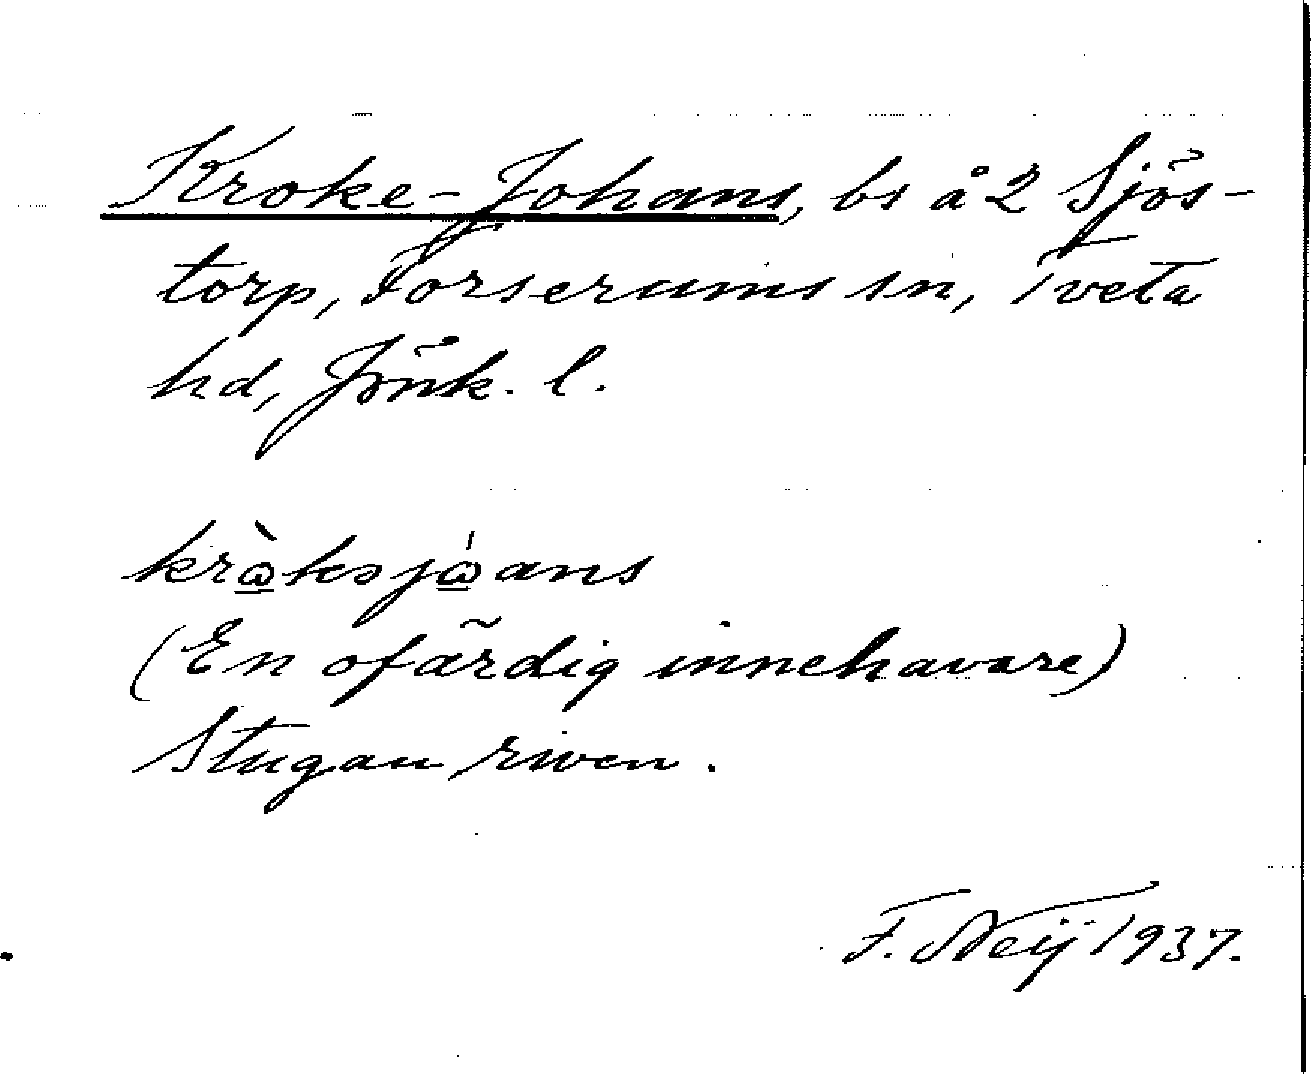 Kroke-Johans, bs å 2 Sjös-
torp, Forserums sn, Tveta
hd, Jönk. l.
krὼ̲ksjώ̲ans
(En ofärdig innehavare)
Stugan riven.
F. Neij 1937.